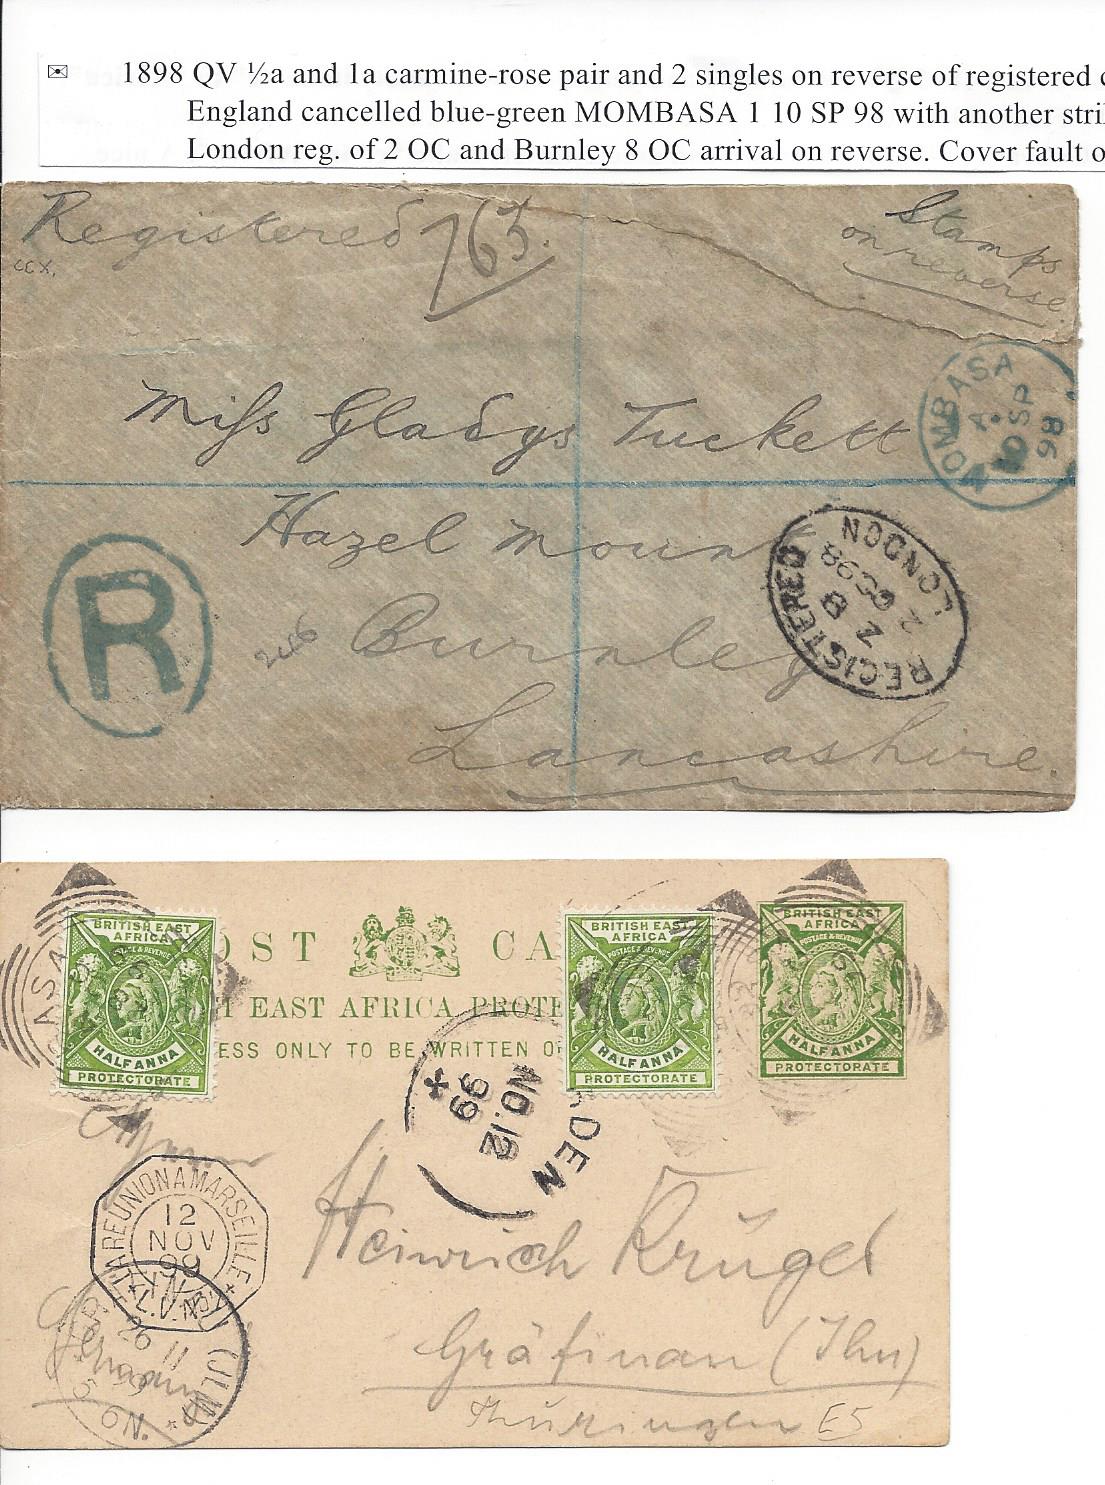 1898 QV ½a and 1a carmine-rose pair and 2 singles on reverse of registered
England cancelled blue-green MOMBASA 1 10 SP 98 with another
London reg. of 2 OC and Burnley 8 OC arrival on reverse. Cover fault
Registered 763.
Stamps
on reverse.
ccx.
MOMBASA
A
10
SP
98
Miss Gladys Tuckett
Hazel Mount
R
246
Burnley
Lancashire.
REGISTERED
LONDON
2 OC 98
B Z
BRITISH EAST
AFRICA
POSTAGE & REVENUE
HALF ANNA
PROTECTORATE
OST CA
BRITISH EAST
AFRICA
POSTAGE & REVENUE
HALF ANNA
PROTECTORATE
BRITISH EAST
AFRICA
POSTAGE & REVENUE
HALF ANNA
PROTECTORATE
T EAST AFRICA PROTE
ESS ONLY TO BE WRITTEN O
ASA
DEN
NO.12
99
LA REUNION A MARSEILLE
12
NOV
99
L.V. N
Heinrich Krügel
Gräfinau (Thn)
Thüringen E5
Germany
26 11
99
(ILM)